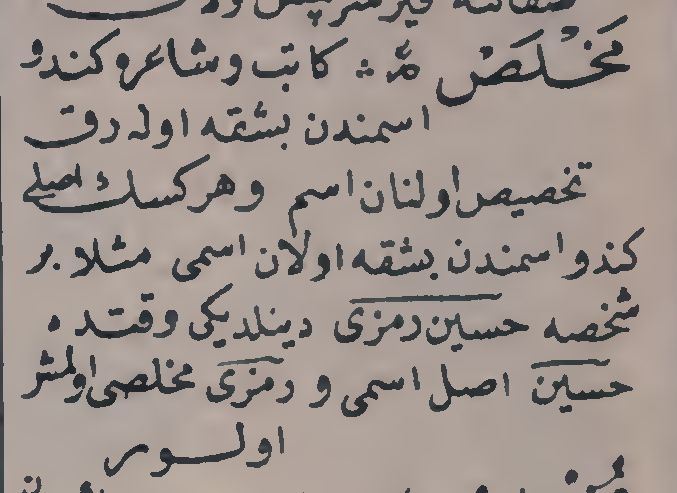 مَخْلَصْ ؏ : كاتب وشاعره كندو
اسمندن بشقه اوله رق
تخصيص اولنان اسم وهر كسك اصيلى
كندو اسمندن بشقه اولان اسمى مثلا بر
شخصه حسين رمزى دينلديكى وقتده
حسين اصل اسمى و رمزى مخلصى اولمش
اولور